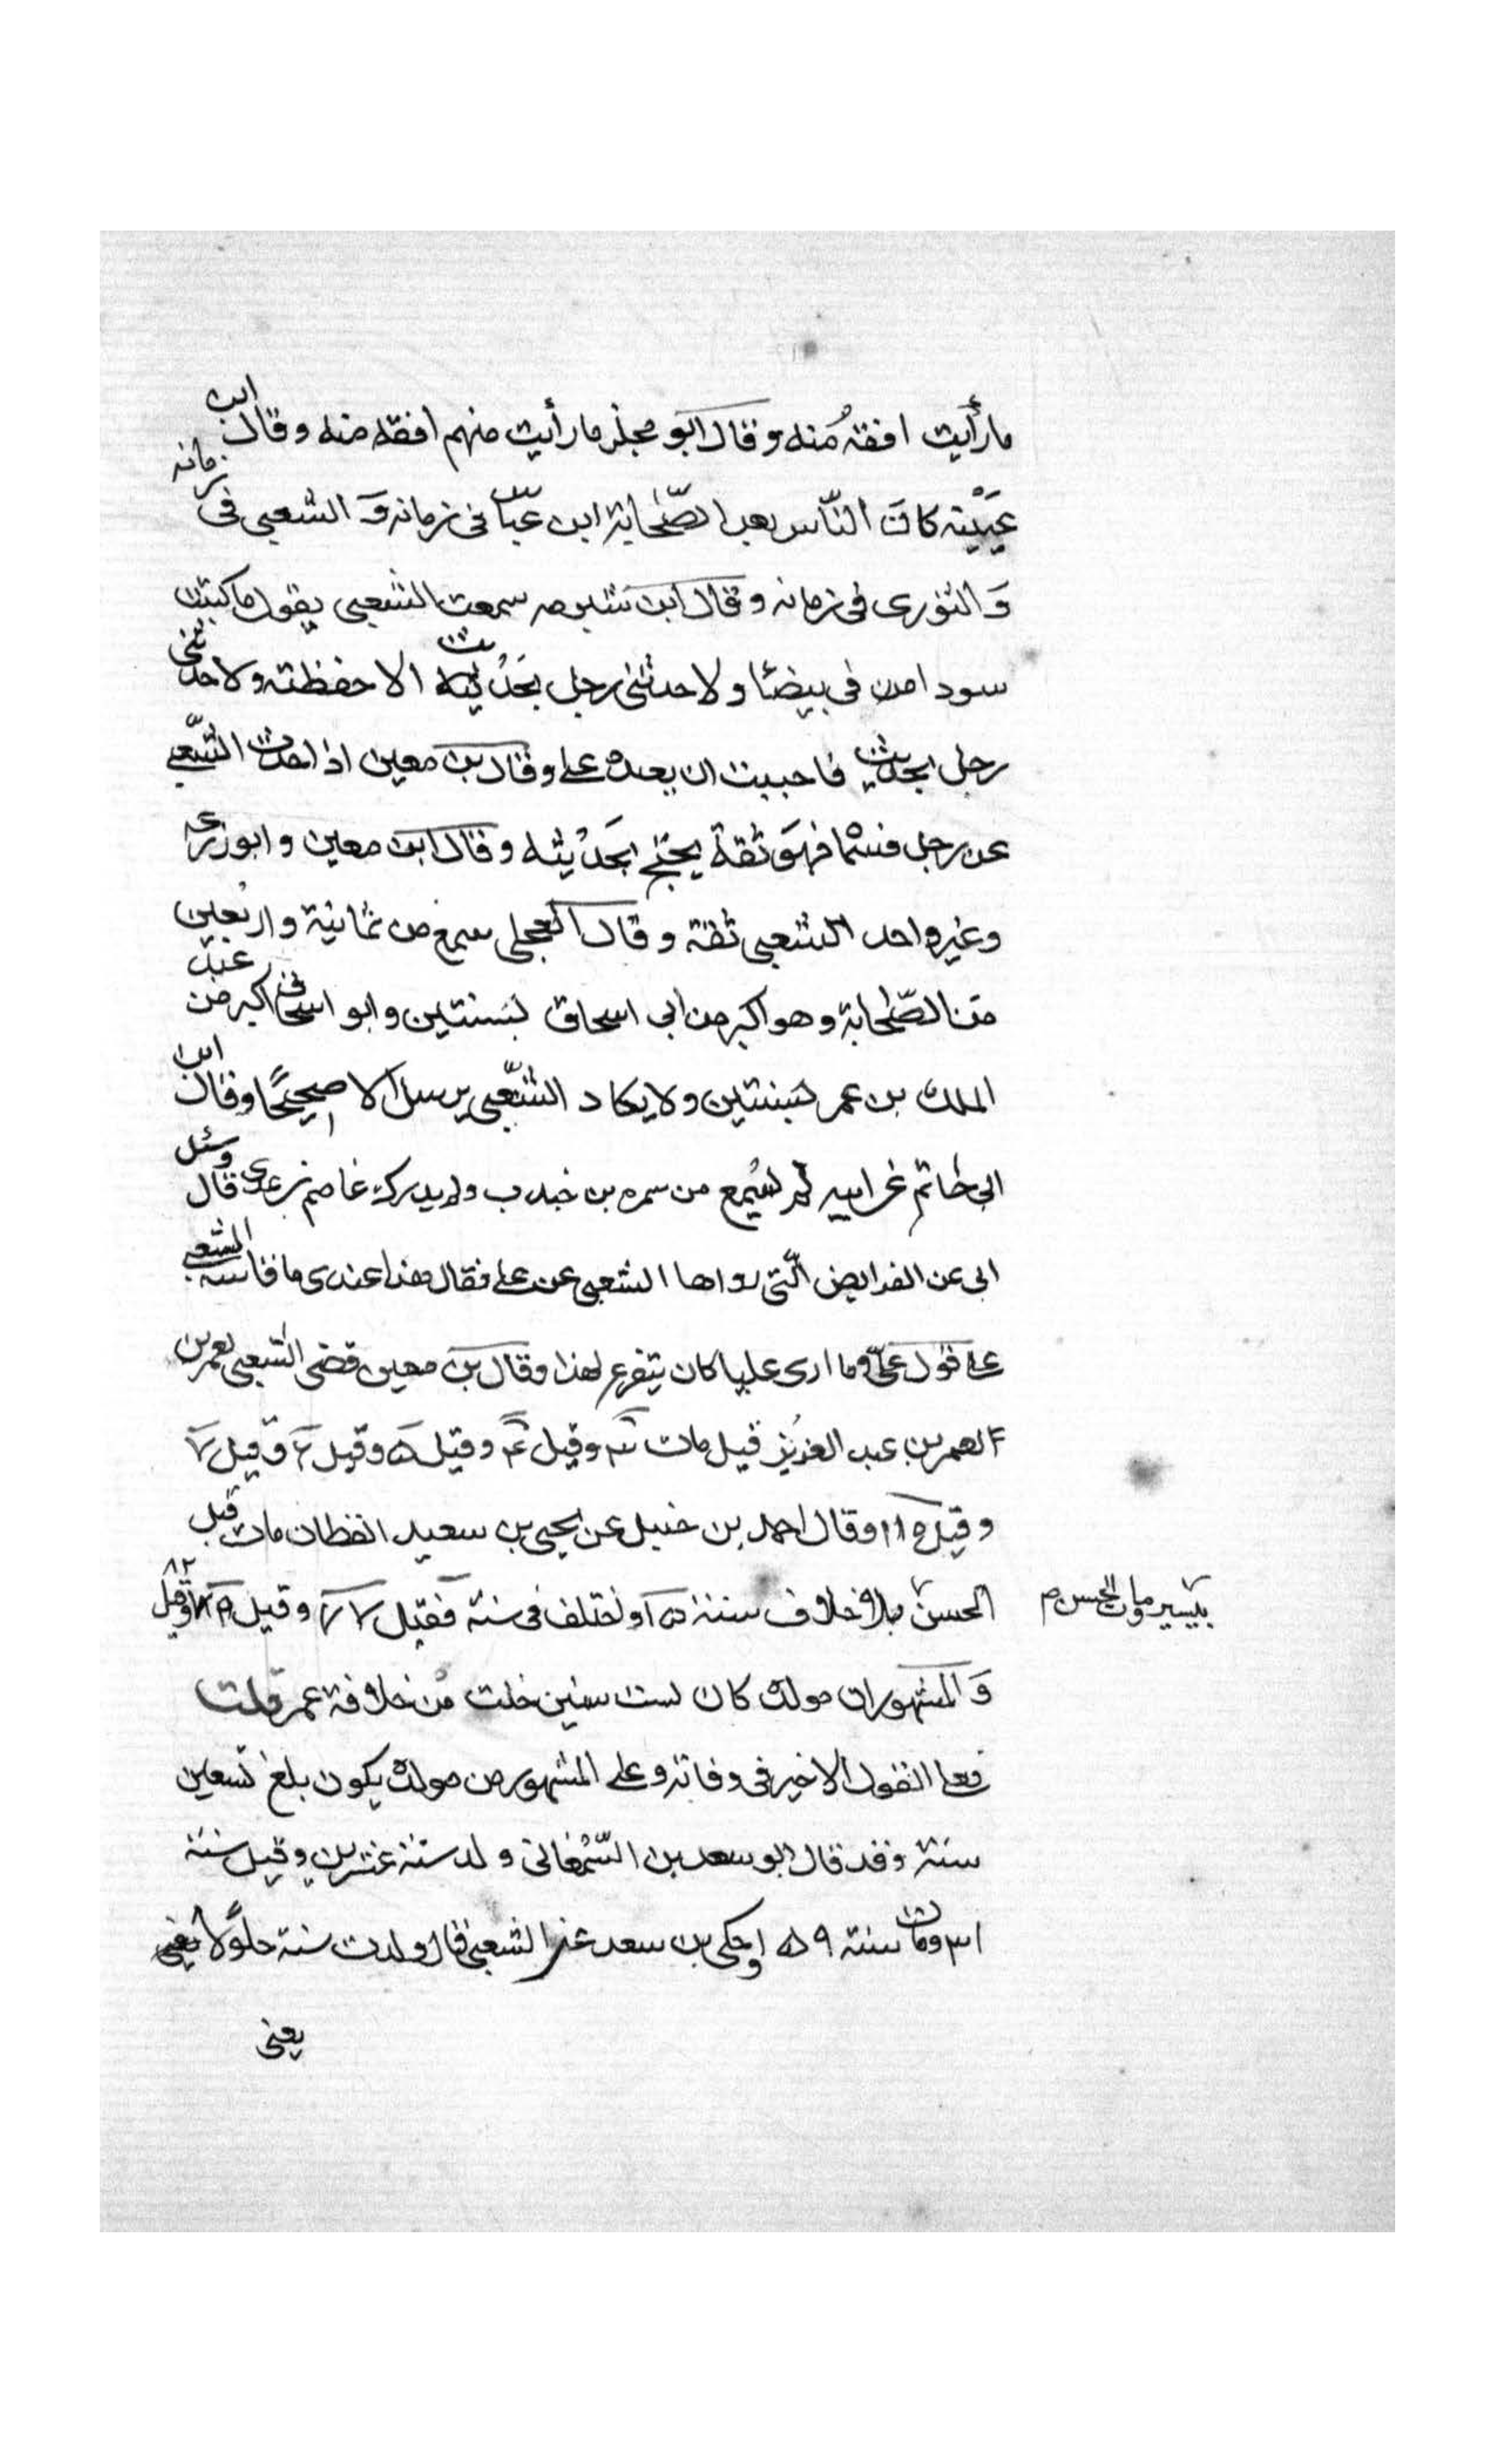 مارأيت افقهُ منه وقال ابو مجلز مارأيت منهم افقه منه وقال ابن
عيَيْنه كانت الناس بعد الصّحابة ابن عبّاس فى زمانه وَ الشعبى فى زمانه
وَ الثورى فى زمانه وقال ابن شبرمه سمعت الشعبى يقول ما كتبت
سودا من فى بيضا ولا حدثنى رجل بحَديث الا حفظته ولا حدثنى
رجل بحديث فاحببت ان يعيده على وقال بن معين اذا حدث الشّعبى
عن رجل فسمّا فهوَ ثقة يحتج بحَديثه وقال ابن معين وابوزرعه
وغير واحد الشعبى ثقة وقال العجلى سمع من ثمانية واربعين
من الصّحابة وهو اكبر من ابى اسحاق بسنتين وابو اسحاق اكبر من عبد
الملك بن عمر بسنتين ولا يكاد الشّعبى يرسل الا صحيحًا وقال ابن
ابى حاتم عن ابيه لم يسمع من سمره بن جندب ولم يدرك عاصم بن عدى قال وسئل
ابى عن الفرايض الّتى رواها الشعبى عن على فقال هذا عندى ما قاسه الشعبى
على قول علىّ وما ارى عليا كان يتفرع لهذا وقال بن معين قضى الشعبى لعمر بن
العمر بن عبد العزيز قيل مات وقيل وقيل وقيل وقيل
وقيل وقال احمد بن حنبل عن يحيى بن سعيد القطان مات قبل
الحسن بلا خلاف سنة واختلف فى سنه فقيل وقيل وقيل ٨٢
بيسير ومات الحسن
وَ المشهور ان مولده كان لست سنين خلت من خلافة عمر قلت
فعلى القول الاخير فى وفاته وعلى المشهور من مولده يكون بلغ تسعين
سنة وقد قال ابو سعد بن السّمْعانى ولد سنة عشرين وقيل سنة
٣١ ومات سنة ١٠٩ وحكى بن سعد عن الشعبى قال ولدت سنة جلولا يعنى
يعنى